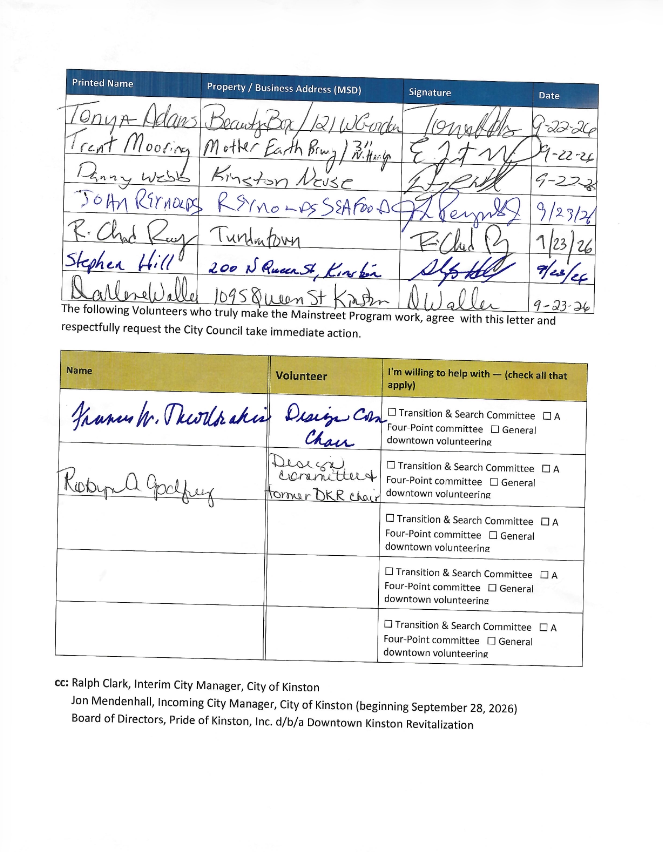 Printed Name Property / Business Address (MSD) Signature Date
Tonya Adams Beauty Box / 121 W Gordon 9-22-26
Trent Mooring Mother Earth Brwg / 311 N. Herig 9-22-26
Danny Webb Kinston Neuse 9-22-26
JOHN REYNOLDS REYNOLDS SEAFOOD 9/23/26
R. Chad Ray R. Chad R 9/23/26
Stephen Hill 200 N Queen St, Kinston 9/23/26
Darlene Waller 109 S Queen St Kinston D Waller 9-23-26
The following Volunteers who truly make the Mainstreet Program work, agree with this letter and
respectfully request the City Council take immediate action.
Name Volunteer I'm willing to help with — (check all that
apply)
Design Com
Chair
☐ Transition & Search Committee ☐ A
Four-Point committee ☐ General
downtown volunteering
Robyn A Godfrey
Design
committee &
former DKR chair
☐ Transition & Search Committee ☐ A
Four-Point committee ☐ General
downtown volunteering
☐ Transition & Search Committee ☐ A
Four-Point committee ☐ General
downtown volunteering
☐ Transition & Search Committee ☐ A
Four-Point committee ☐ General
downtown volunteering
☐ Transition & Search Committee ☐ A
Four-Point committee ☐ General
downtown volunteering
cc: Ralph Clark, Interim City Manager, City of Kinston
Jon Mendenhall, Incoming City Manager, City of Kinston (beginning September 28, 2026)
Board of Directors, Pride of Kinston, Inc. d/b/a Downtown Kinston Revitalization